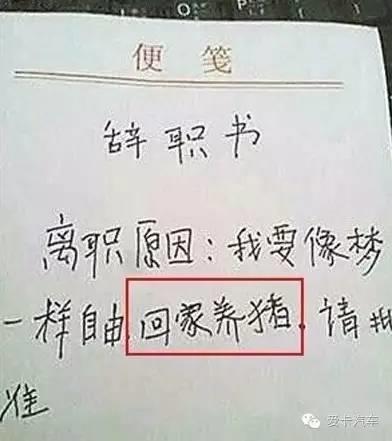 便笺
辞职书
离职原因：我要像梦
一样自由.回家养猪.请批
准
爱卡汽车